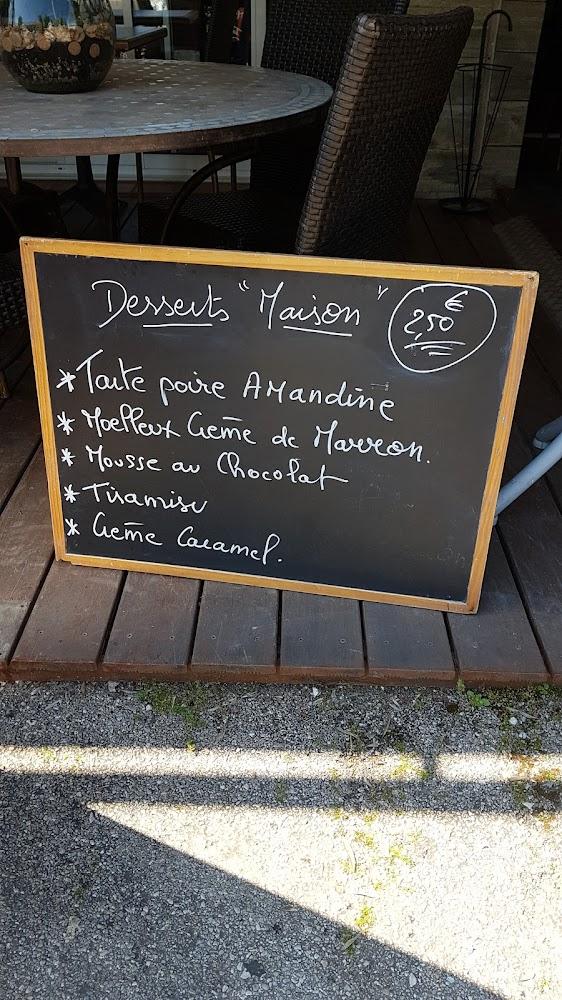 Desserts "Maison" 2,50 €
* Tarte poire AMandine
* Moelleux Crème de Marron.
* Mousse au Chocolat
* Tiramisu
* Crème Caramel.